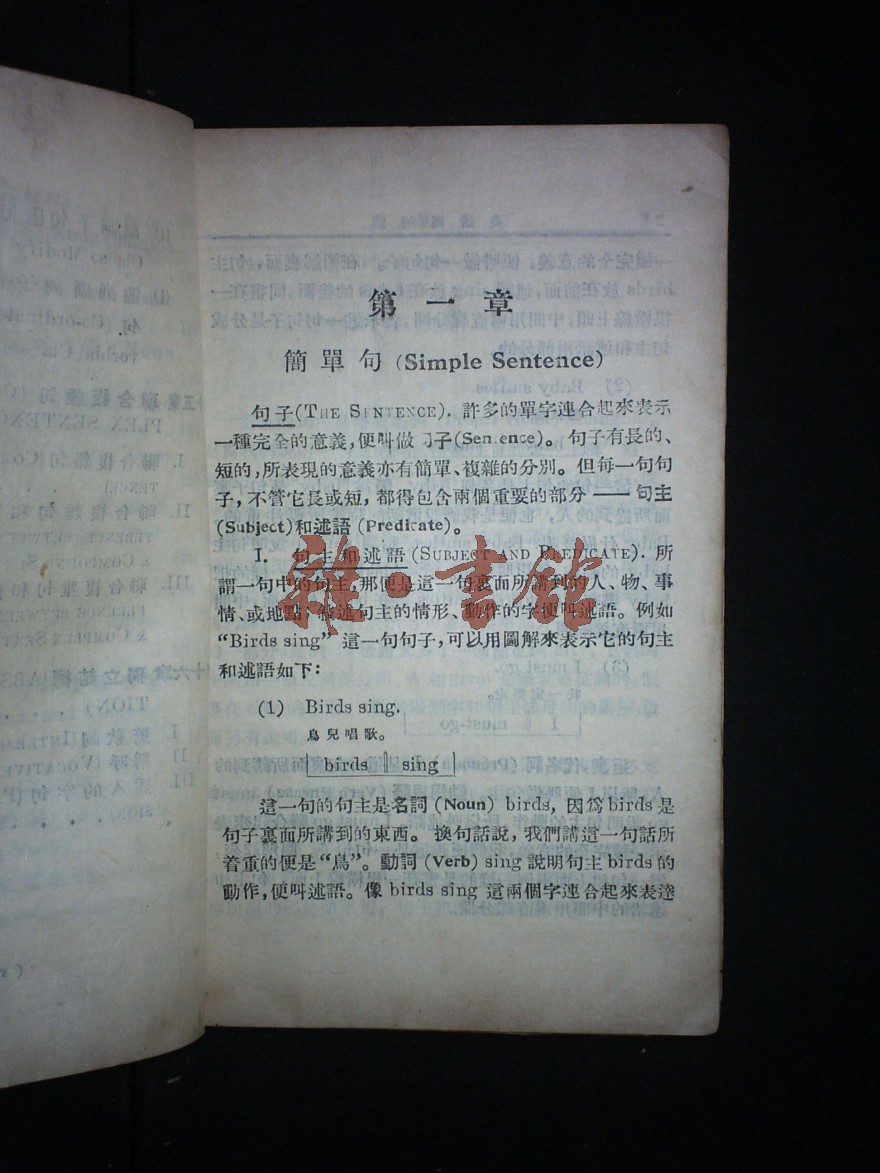 第一章
簡單句 (Simple Sentence)
句子 (THE SENTENCE). 許多的單字連合起來表示
一種完全的意義,便叫做句子(Sentence)。 句子有長的、
短的,所表現的意義亦有簡單、複雜的分別。但每一句句
子,不管它長或短,都得包含兩個重要的部分 —— 句主
(Subject)和述語 (Predicate)。
I. 句主和述語 (SUBJECT AND PREDICATE). 所
謂一句中的句主,那便是這一句裏面所講到的人、物、事
情、或地點;敘述句主的情形、動作的字便叫述語。例如
“Birds sing” 這一句句子,可以用圖解來表示它的句主
和述語如下:
(1) Birds sing.
鳥兒唱歌。
birds sing
這一句的句主是名詞 (Noun) birds, 因爲 birds 是
句子裏面所講到的東西。 換句話說,我們講這一句話所
着重的便是“鳥”。動詞 (Verb) sing 說明句主 birds 的
動作,便叫述語。像 birds sing 這兩個字連合起來表達
雜·書館